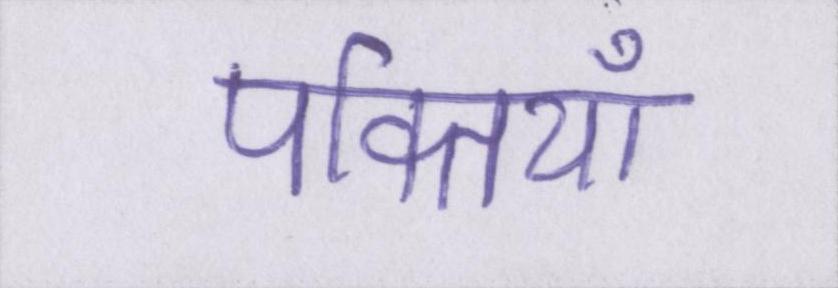 पक्तियाँ